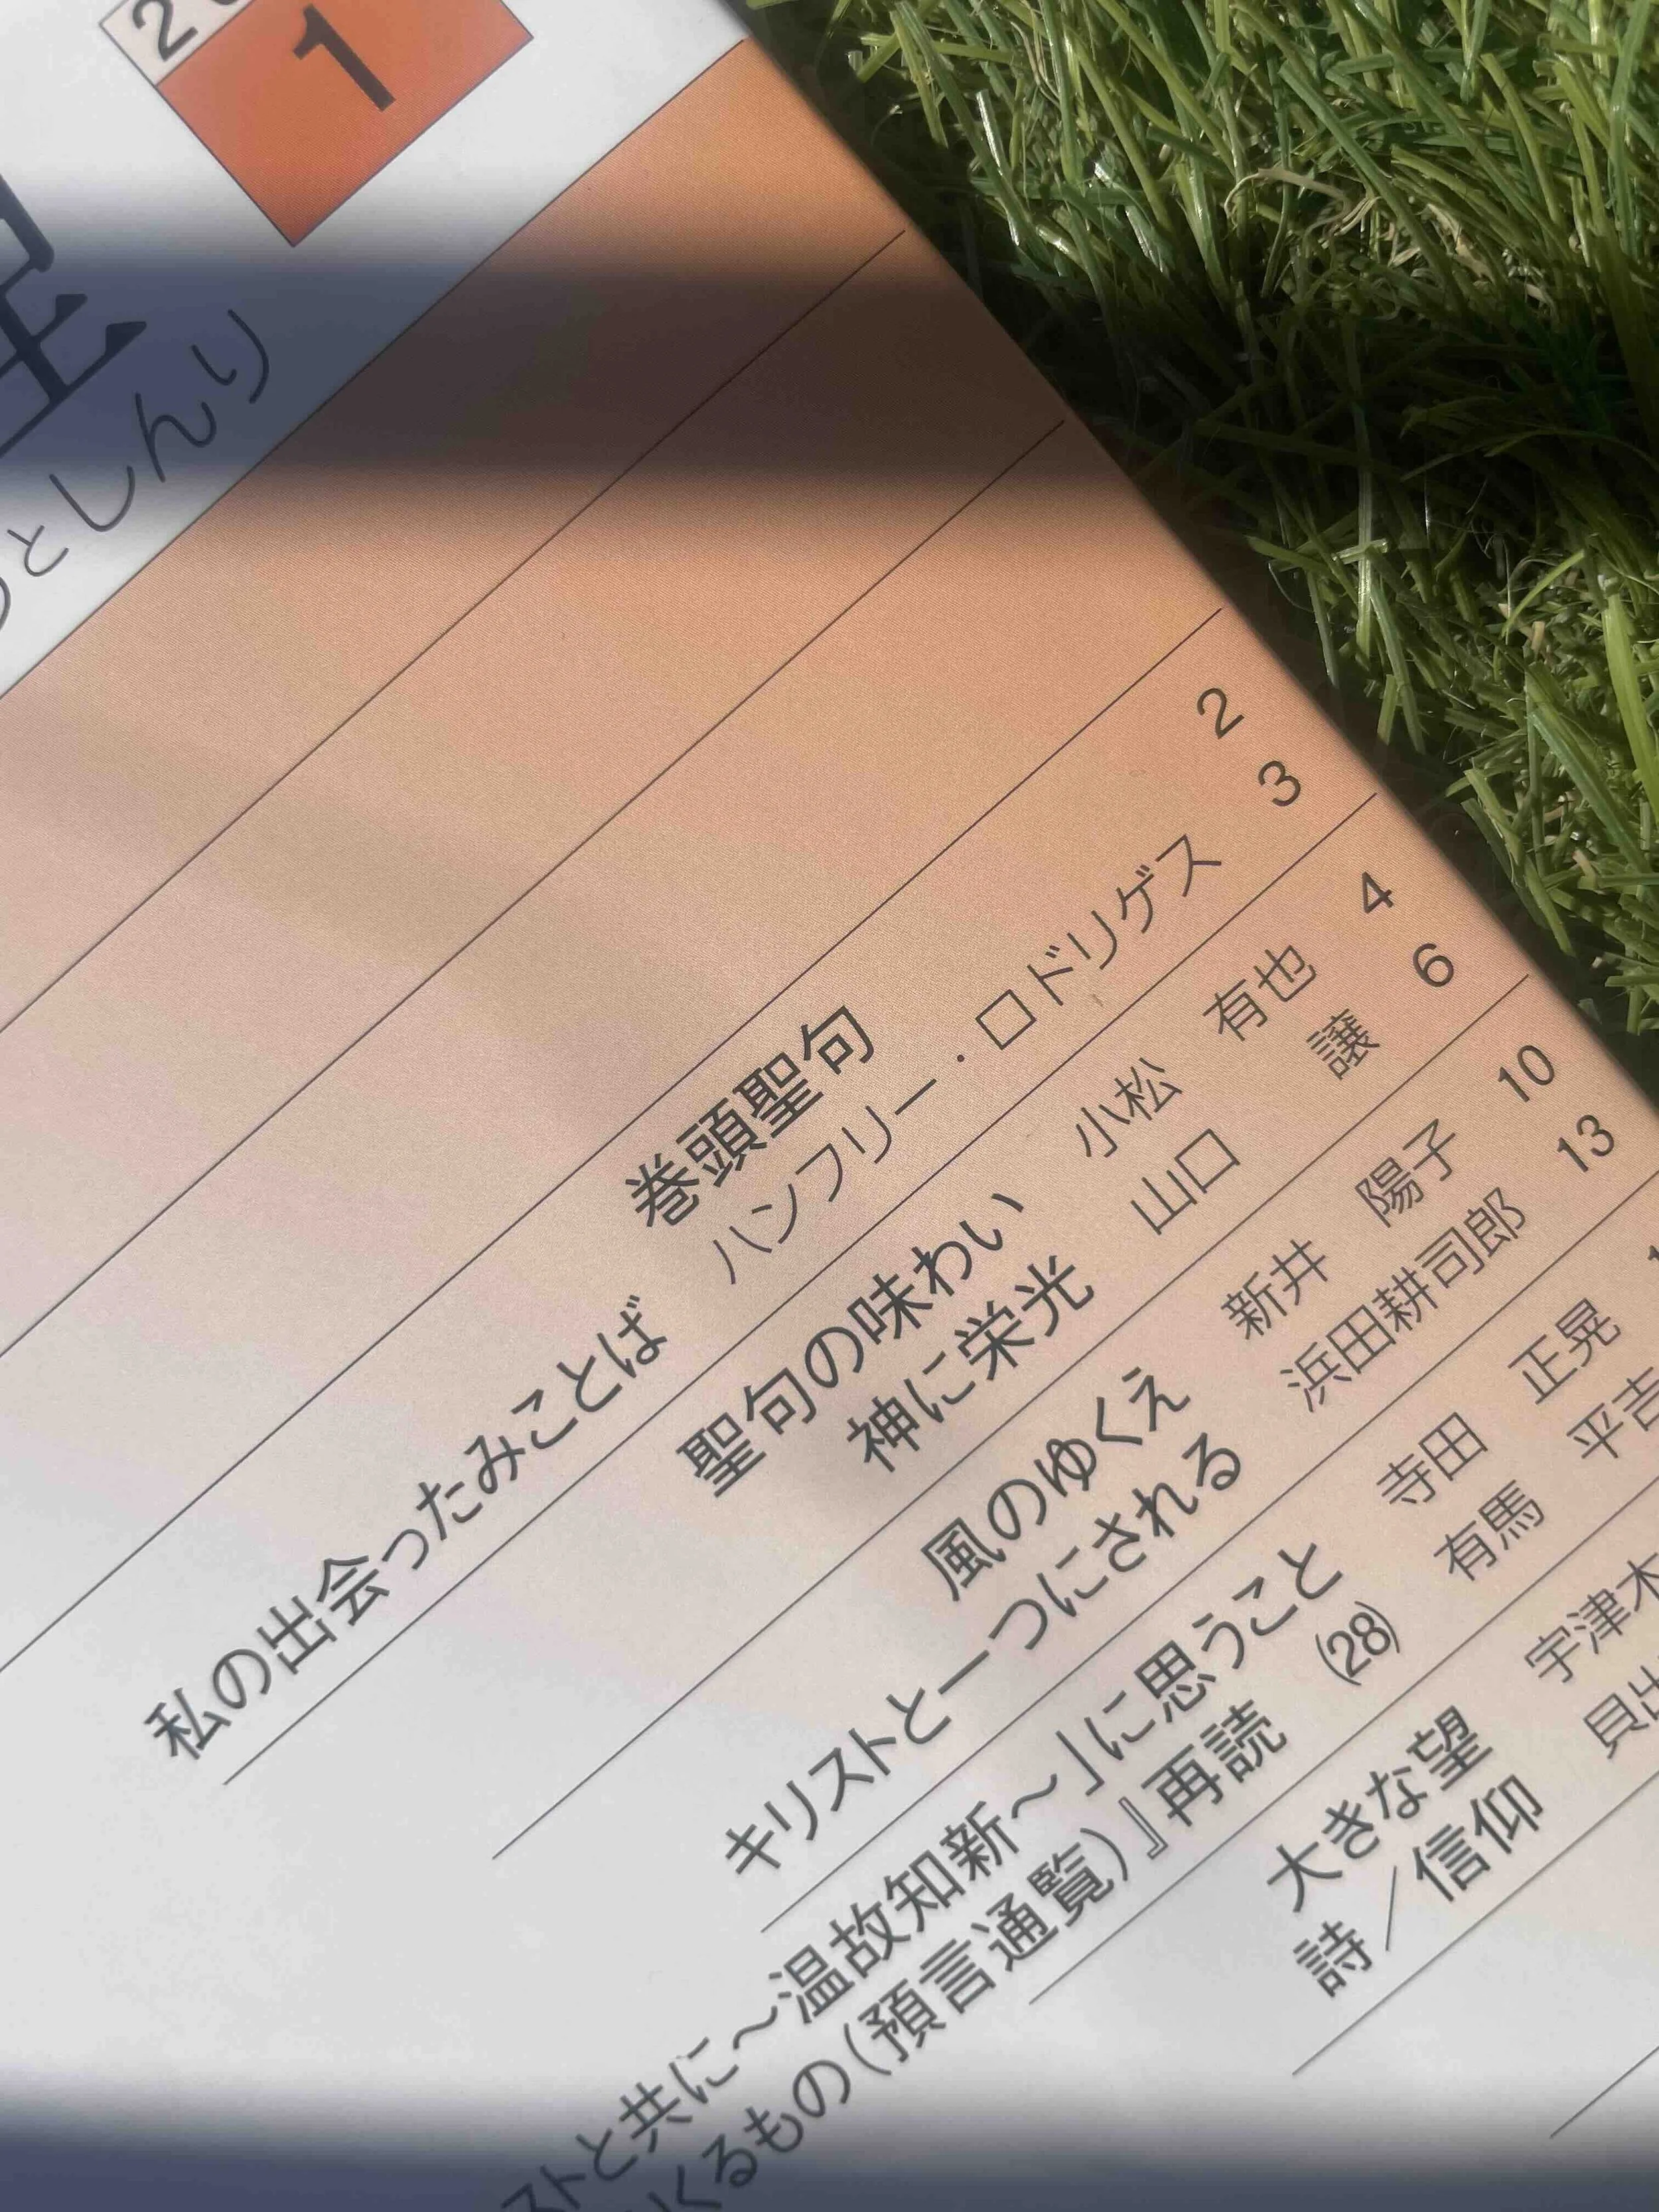 1
理
としんり
巻頭聖句 2
私の出会ったみことば ハンフリー・ロドリゲス 3
聖句の味わい 小松 有也 4
神に栄光 山口 譲 6
風のゆくえ 新井 陽子 10
キリストと一つにされる 浜田耕司郎 13
ストと共に～温故知新～」に思うこと 寺田 正晃
くるもの(預言通覧)』再読 (28) 有馬 平吉
大きな望 宇津木
詩／信仰 貝出